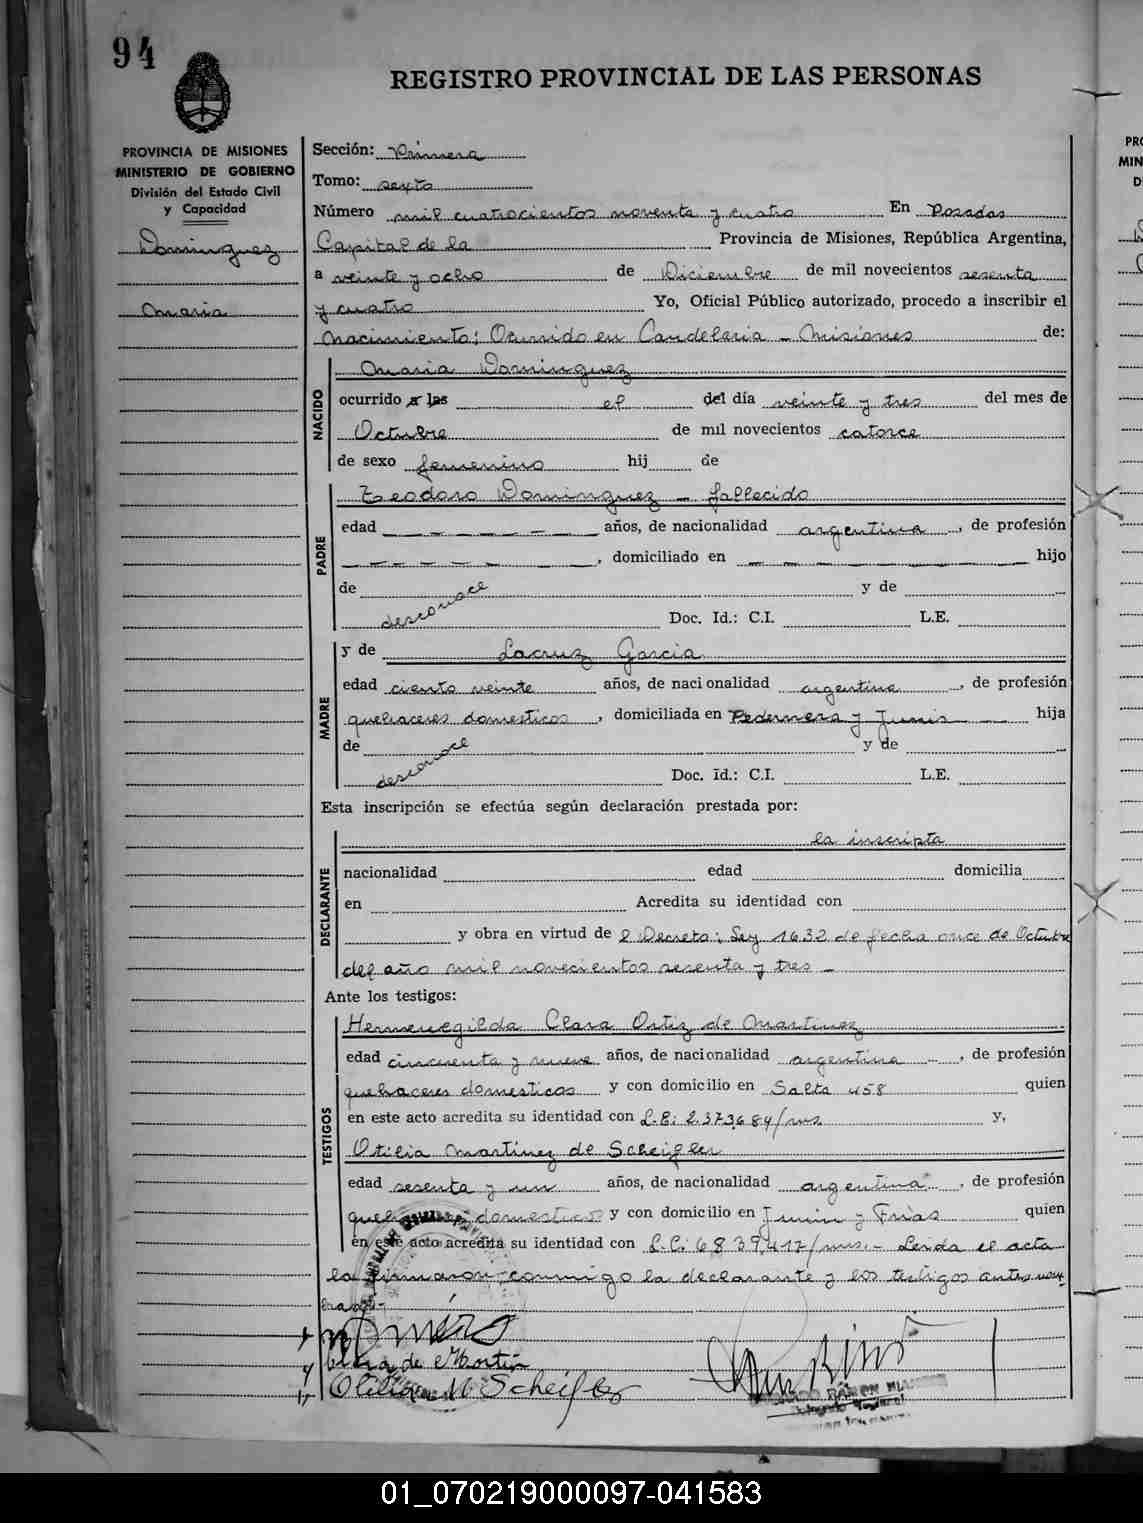 94
REGISTRO PROVINCIAL DE LAS PERSONAS
PROVINCIA DE MISIONES
MINISTERIO DE GOBIERNO
División del Estado Civil
y Capacidad
Dominguez
Maria
Sección: Primera
Tomo: sexto
Número mil cuatrocientos noventa y cuatro En Posadas
Capital de la Provincia de Misiones, República Argentina,
a veinte y ocho de Diciembre de mil novecientos sesenta
y cuatro Yo, Oficial Público autorizado, procedo a inscribir el
Nacimiento: Ocurrido en Candelaria - Misiones de:
NACIDO
Maria Dominguez
ocurrido a las el del día veinte y tres del mes de
Octubre de mil novecientos catorce
de sexo femenino hij de
PADRE
Teodoro Dominguez - fallecido
edad - - - - - - años, de nacionalidad argentina, de profesión
- - - - - - -, domiciliado en - - - - - - - - hijo
de y de
desconoce Doc. Id.: C.I. L.E.
MADRE
y de Lacruz Garcia
edad ciento veinte años, de nacionalidad argentina, de profesión
quehaceres domesticos, domiciliada en Pedernera y Junin - hija
de y de
desconoce Doc. Id.: C.I. L.E.
Esta inscripción se efectúa según declaración prestada por:
DECLARANTE
la inscripta
nacionalidad edad domicilia
en Acredita su identidad con
y obra en virtud de l Decreto: Ley 1632 de fecha once de Octubre
del año mil novecientos sesenta y tres -
Ante los testigos:
TESTIGOS
Hermenegilda Clara Ortiz de Martinez
edad cincuenta y nueve años, de nacionalidad argentina, de profesión
quehaceres domesticos y con domicilio en Salta 458 quien
en este acto acredita su identidad con L.E: 2.373.684/ms y,
Otilia Martinez de Scheifler
edad sesenta y un años, de nacionalidad argentina, de profesión
quehaceres domesticos y con domicilio en Junin y Frias quien
en este acto acredita su identidad con L.C: 6839.417/ms.- Leida el acta
la firmaron conmigo la declarante y los testigos antes nom-
brados-
Clara de Martin
Otilia M Scheifler
RAMON
01_070219000097-041583